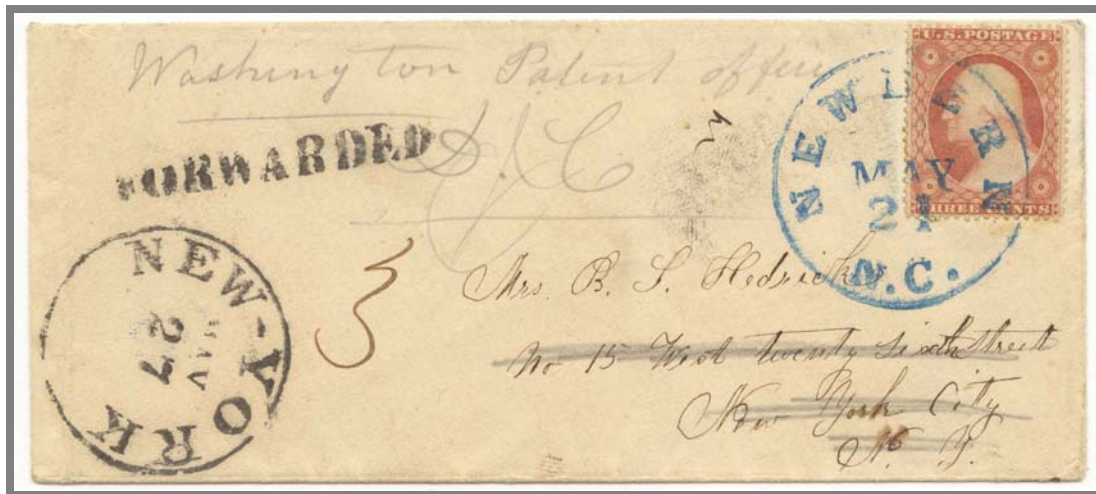 Washington Patent office
D. C
FORWARDED
U.S. POSTAGE
THREE CENTS
NEWBERN
MAY
21
N.C.
NEW-YORK
MAY
27
3
Mrs. B. S. Hedrick
No 15 West twenty Sixth Street
New York City
N. Y.